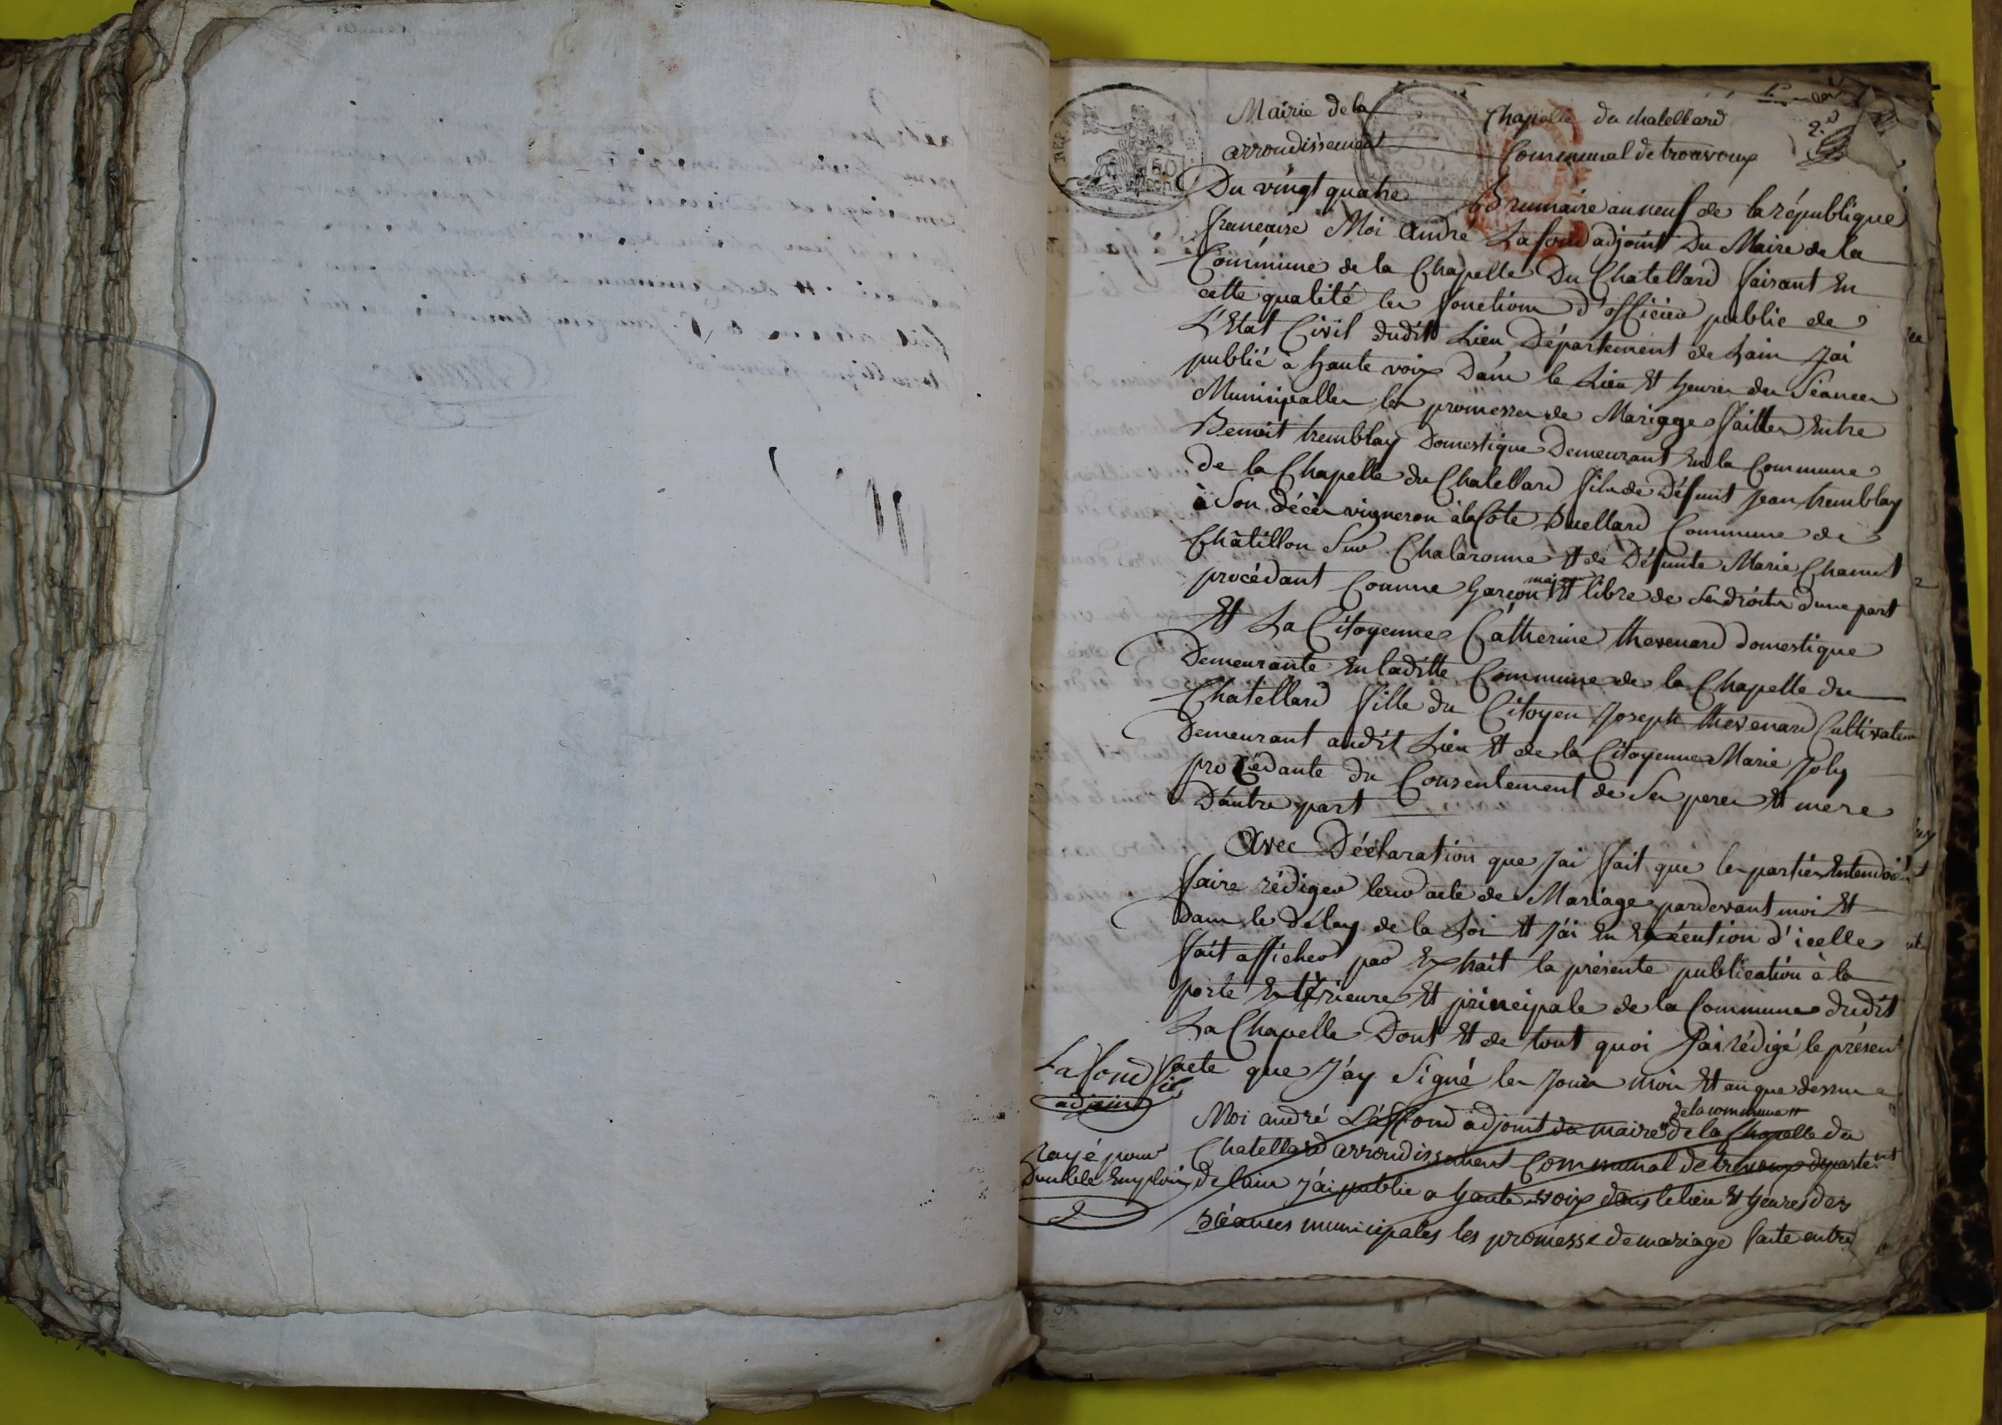 Mairie de la Chapelle du chatellard
arrondissement Communal de trevoux
Du vingt quatre Brumaire an neuf de la république
francaise Moi andré Lafond adjoint Du Maire de la
Commune de la Chapelle Du Chatellard faisant En
cette qualité les fonctions d'officier public de
L'Etat Civil dudit Lieu Département de Lain J'ai
publié à haute voix Dans le Lieu Et heures des Séances
Municipalles les promesses de Mariage faittes Entre
Benoit tremblay Domestique Demeurant En la Commune
de la Chapelle du Chatellard fils de Défunt Jean tremblay
à Son décès vigneron à la Cote Buellard Commune de
Châtillon Sur Chalaronne Et de Défunte Marie Chanut
procédant Comme garcon majeur Et libre de Ses droits d'une part
Et La Citoyenne Catherine thevenard domestique
Demeurante En laditte Commune de la Chapelle du
Chatellard fille du Citoyen Joseph thevenard Cultivateur
Demeurant audit Lieu Et de la Citoyenne Marie Joly
procédante du Consentement de Ses peres Et mere
D'autre part
Avec Déclaration que J'ai fait que les parties Entendoient
faire rédiger leur acte de Mariage pardevant moi Et
Dans le Délay de la Loi Et J'ai En Exécution d'icelle
fait afficher par Extrait la présente publication à la
porte Extérieure Et principale de la Commune dudit
La Chapelle Dont Et de tout quoi J'ai rédigé le présent
acte que J'ay Signé les Jour mois Et an que dessus
Lafond fils
adjoint
Moi andré Laffond adjoint du maire de la commune de la Chapelle du
Chatellard arrondissement Communal de trevoux departent
de lain j'ai publie a haute voix dans le lieu Et heures des
séances municipales les promesse de mariage faite entre
Rayé pour
Double Employ